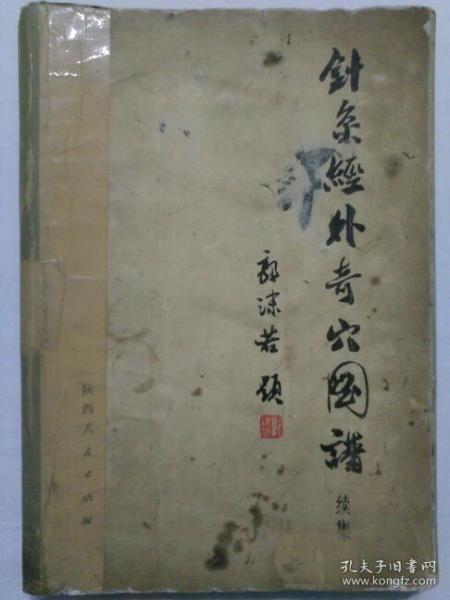 針灸經外奇穴图譜
续集
郭沫若題
陕西人民出版
孔夫子旧书网
www.kongfz.com